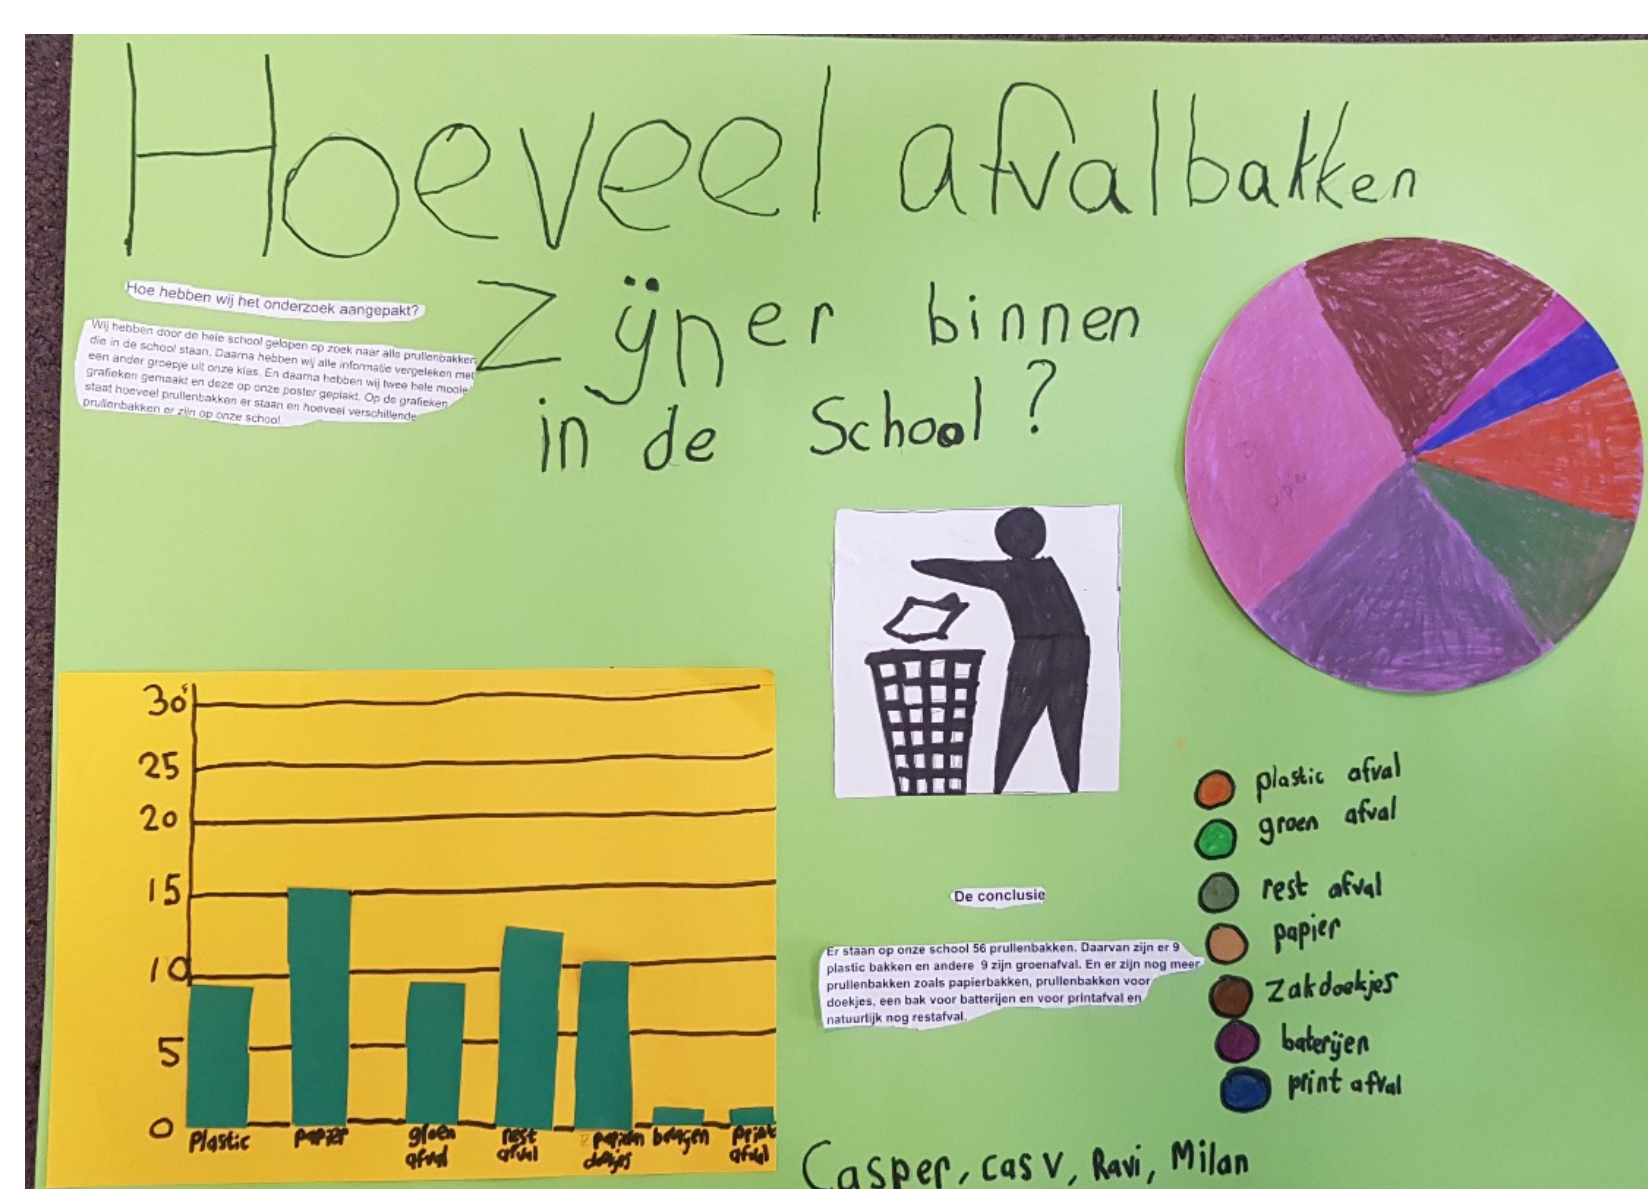 Hoeveel afvalbakken
Zijn er binnen
in de School?
Hoe hebben wij het onderzoek aangepakt?
Wij hebben door de hele school gelopen op zoek naar alle prullenbakken
die in de school staan. Daarna hebben wij alle informatie vergeleken met
een ander groepje uit onze klas. En daarna hebben wij twee hele mooie
grafieken gemaakt en deze op onze poster geplakt. Op de grafieken
staat hoeveel prullenbakken er staan en hoeveel verschillende
prullenbakken er zijn op onze school.
30
25
20
15
10
5
0
Plastic
papier
groen
afval
rest
afval
doekjes
print
afval
De conclusie
Er staan op onze school 56 prullenbakken. Daarvan zijn er 9
plastic bakken en andere 9 zijn groenafval. En er zijn nog meer
prullenbakken zoals papierbakken, prullenbakken voor
doekjes, een bak voor batterijen en voor printafval en
natuurlijk nog restafval.
plastic afval
groen afval
rest afval
papier
Zakdoekjes
baterijen
print afval
Casper, cas V, Ravi, Milan